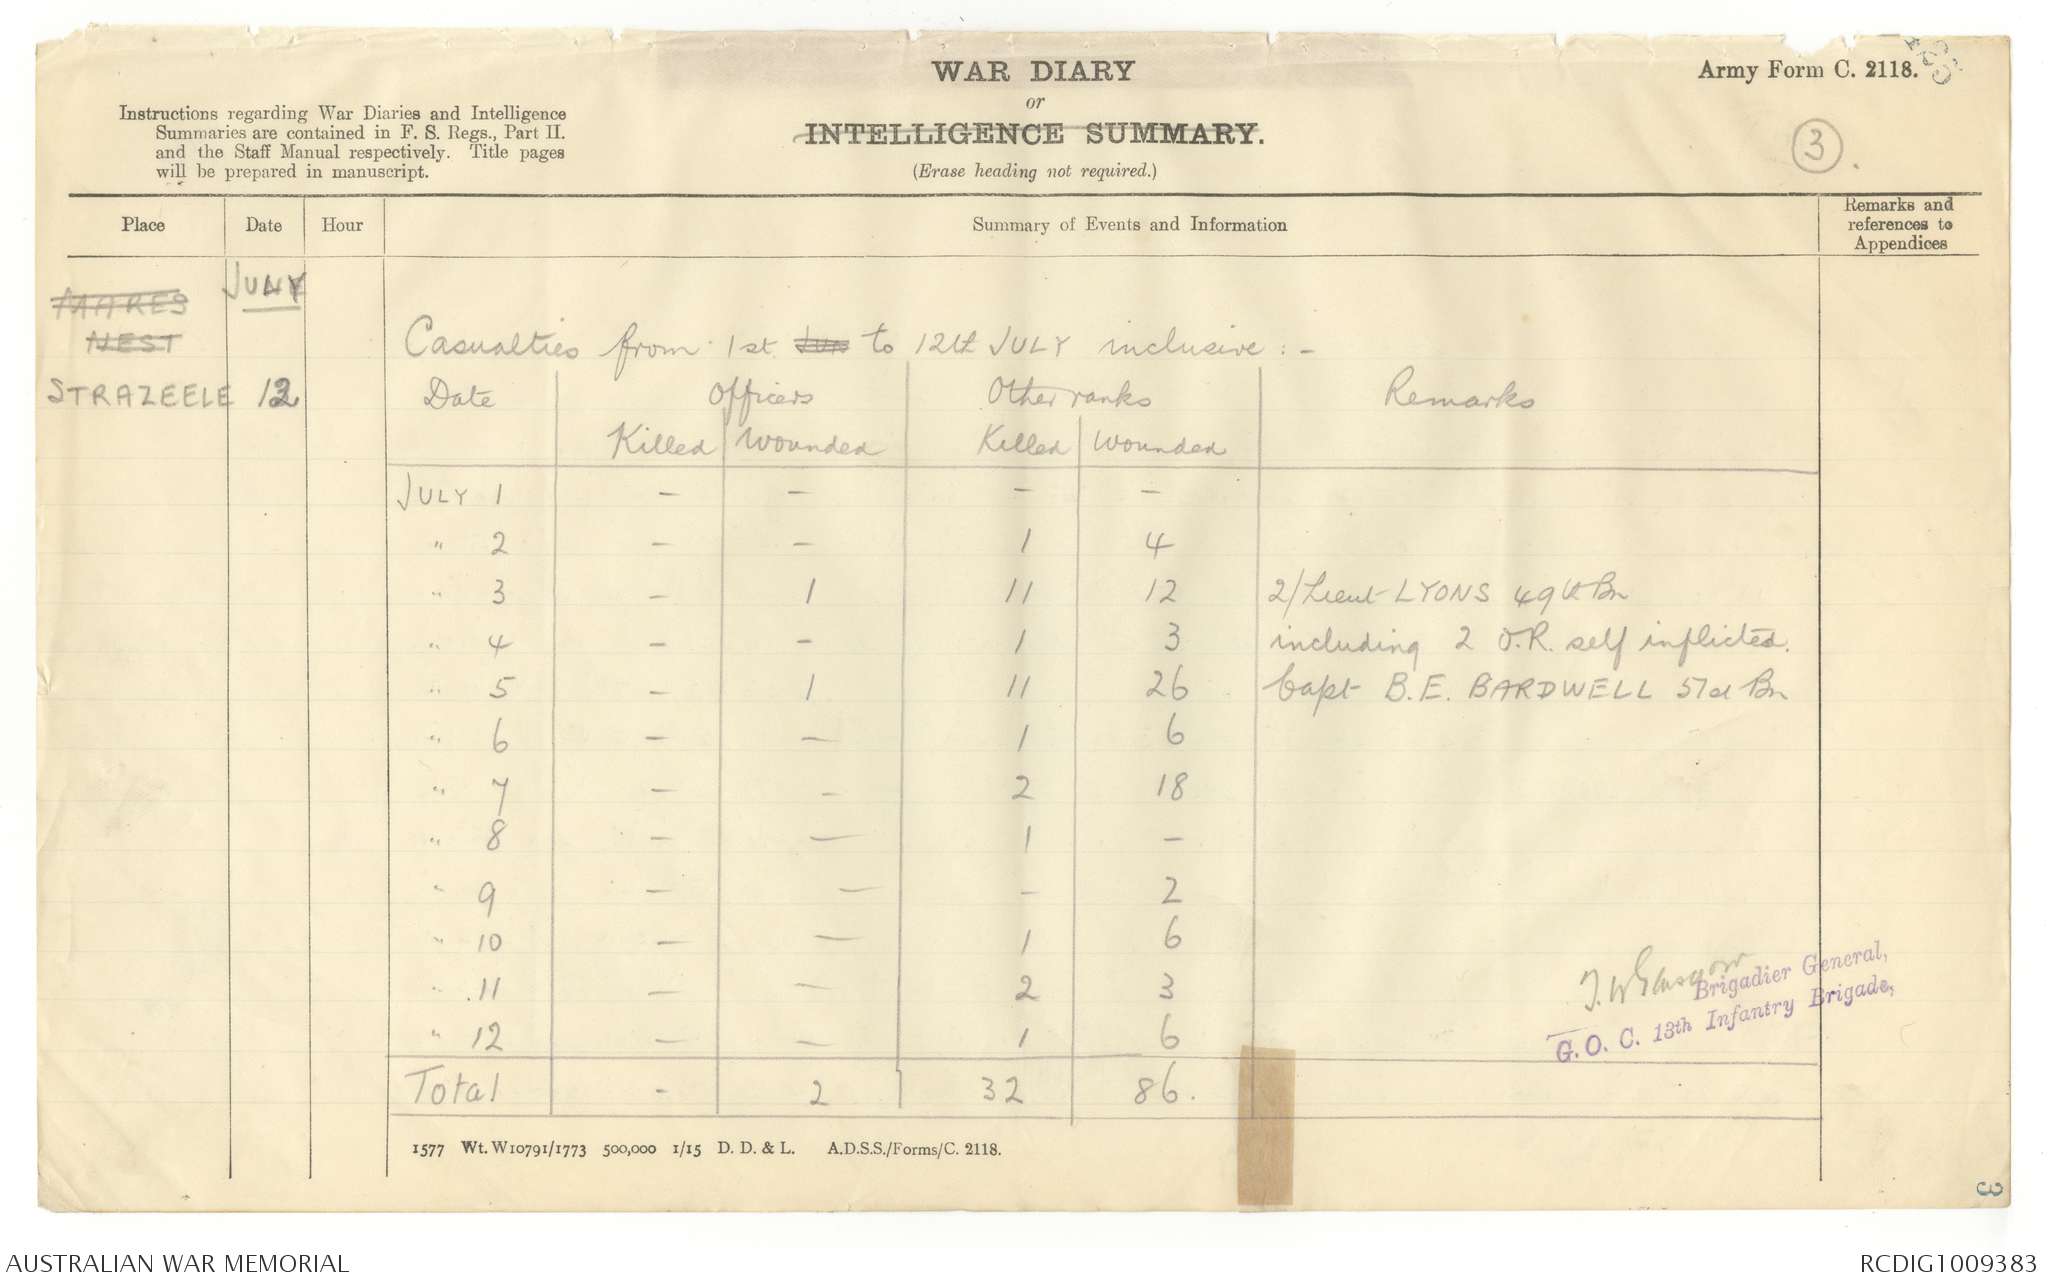 WAR DIARY
or
INTELLIGENCE SUMMARY.
(Erase heading not required.)
Army Form C. 2118.
Instructions regarding War Diaries and Intelligence
Summaries are contained in F. S. Regs., Part II.
and the Staff Manual respectively. Title pages
will be prepared in manuscript.
3
Place Date Hour Summary of Events and Information Remarks and references to Appendices
MARES
NEST
JULY
STRAZEELE 12
Casualties from 1st Jun to 12th JULY inclusive :-
Date Officers Other ranks Remarks
Killed Wounded Killed Wounded
JULY 1 - - - -
" 2 - - 1 4
" 3 - 1 11 12 2/Lieut LYONS 49th Bn
" 4 - - 1 3 including 2 O.R. self inflicted.
" 5 - 1 11 26 Capt B.E. BARDWELL 51st Bn
" 6 - - 1 6
" 7 - - 2 18
" 8 - - 1 -
" 9 - - - 2
" 10 - - 1 6
" 11 - - 2 3
" 12 - - 1 6
Total - 2 32 86.
T. W Glasgow
Brigadier General,
G. O. C. 13th Infantry Brigade,
1577 Wt. W10791/1773 500,000 1/15 D. D. & L. A.D.S.S./Forms/C. 2118.
3
AUSTRALIAN WAR MEMORIAL
RCDIG1009383